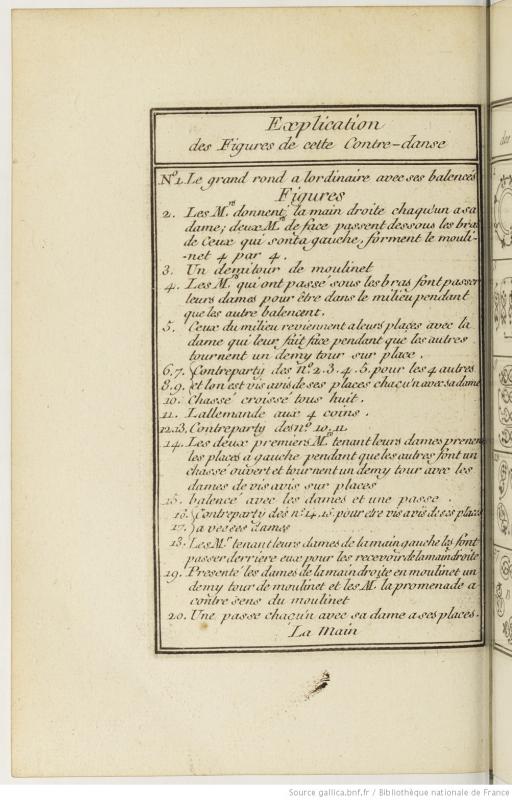 Explication
des Figures de cette Contre-danse
N.º1. Le grand rond a lordinaire avec ses balencés
Figures
2. Les M.rs donnent, la main droite chaqu'un a sa
dame; deux M.rs de face passent dessous les bras
de Ceux qui sont a gauche, forment le mouli-
-net 4 par 4.
3. Un demi tour de moulinet
4. Les M.rs qu'ont passé sous les bras font passer
leurs dames pour être dans le milieu pendant
que les autre balencent.
5. Ceux du milieu reviennent a leurs places avec la
dame qui leur fait face pendant que les autres
tournent un demy tour sur place.
6.7. Contreparty des n.º 2. 3. 4. 5. pour les 4 autres
8.9. et lon est vis avis de ses places chaçu'n avec sa dame
10. Chassé croissé tous huit.
11. Lallemande aux 4 coins.
12.13. Contreparty des n.º 10. 11
14. Les deux premiers M.rs tenant leurs dames prenent
les places à gauche pendant que les autres font un
chassé ouvert et tournent un demy tour avec les
dames de vis avis sur places
15. balencé avec les dames et une passe.
16. Contreparty des n.º 14. 15. pour etre vis avis de ses places
17. a vec ses dames
18. Les M.rs tenant leurs dames de la main gauche les font
passer derriere eux pour les recevoir de la main droite
19. Presenté les dames de la main droite en moulinet un
demy tour de moulinet et les M.rs la promenade a
contre sens du moulinet
20. Une passe chaçu'n avec sa dame a ses places.
La Main
des
Source gallica.bnf.fr / Bibliothèque nationale de France